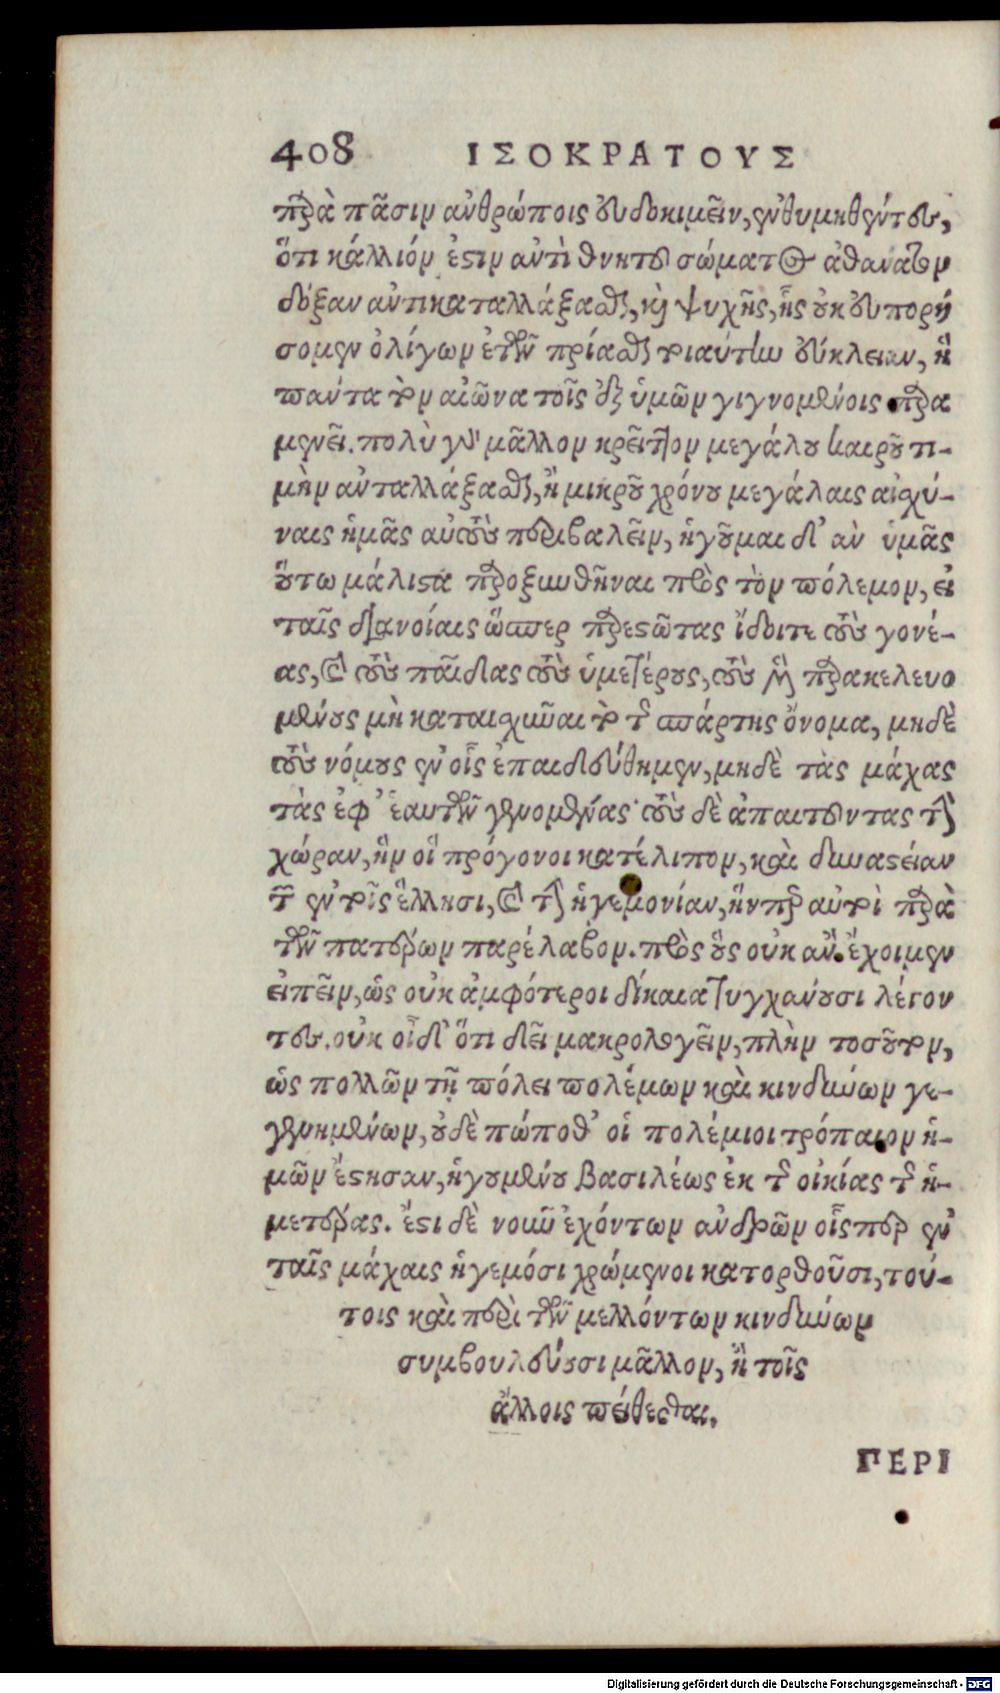 408 ΙΣΟΚΡΑΤΟΥΣ
παρὰ πᾶσιν ἀνθρώποις εὐδοκιμεῖν, ἐνθυμηθέντες,
ὅτι κάλλιόν ἐστιν ἀντὶ θνητοῦ σώματος ἀθάνατον
δόξαν ἀντικαταλλάξασθαι, καὶ ψυχῆς, ἧς οὐκ εὐπορή
σομεν ὀλίγων ἐτῶν πρίασθαι τοιαύτην εὔκλειαν, ἢ
πάντα τὸν αἰῶνα τοῖς ἐξ ὑμῶν γιγνομένοις παρα
μενεῖ. πολὺ γὰρ μᾶλλον κρεῖττον μεγάλου καιροῦ τι-
μὴν ἀνταλλάξασθαι, ἢ μικροῦ χρόνου μεγάλαις αἰσχύ-
ναις ἡμᾶς αὐτοὺς περιβαλεῖν, ἡγοῦμαι δ' ἂν ὑμᾶς
οὕτω μάλιστα παροξυνθῆναι πρὸς τὸν πόλεμον, εἰ
ταῖς διανοίαις ὥσπερ παρεστῶτας ἴδοιτε τοὺς γονέ-
ας, καὶ τοὺς παῖδας τοὺς ὑμετέρους, τοὺς μὲν παρακελευο
μένους μὴ καταισχῦναι τὸ τῆς σπάρτης ὄνομα, μηδὲ
τοὺς νόμους ἐν οἷς ἐπαιδεύθημεν, μηδὲ τὰς μάχας
τὰς ἐφ' ἑαυτῶν γενομένας· τοὺς δὲ ἀπαιτοῦντας τὴν
χώραν, ἣν οἱ πρόγονοι κατέλιπον, καὶ δυναστείαν
τὴν ἐν τοῖς ἕλλησι, καὶ τὴν ἡγεμονίαν, ἥνπερ αὐτοὶ παρὰ
τῶν πατέρων παρέλαβον. πρὸς οὓς οὐκ ἂν ἔχοιμεν
εἰπεῖν, ὡς οὐκ ἀμφότεροι δίκαια τυγχάνουσι λέγον
τες. οὐκ οἶδ' ὅτι δεῖ μακρολογεῖν, πλὴν τοσοῦτον,
ὡς πολλῶν τῇ πόλει πολέμων καὶ κινδύνων γε-
γενημένων, οὐδὲ πώποθ' οἱ πολέμιοι τρόπαιον ἡ-
μῶν ἔστησαν, ἡγουμένου βασιλέως ἐκ τῆς οἰκίας τῆς ἡ-
μετέρας. ἔστι δὲ νοῦν ἐχόντων ἀνδρῶν οἷσπερ ἐν
ταῖς μάχαις ἡγεμόσι χρώμενοι κατορθοῦσι, τού-
τοις καὶ περὶ τῶν μελλόντων κινδύνων
συμβουλεύουσι μᾶλλον, ἢ τοῖς
ἄλλοις πείθεσθαι.
ΠΕΡΙ
Digitalisierung gefördert durch die Deutsche Forschungsgemeinschaft - DFG